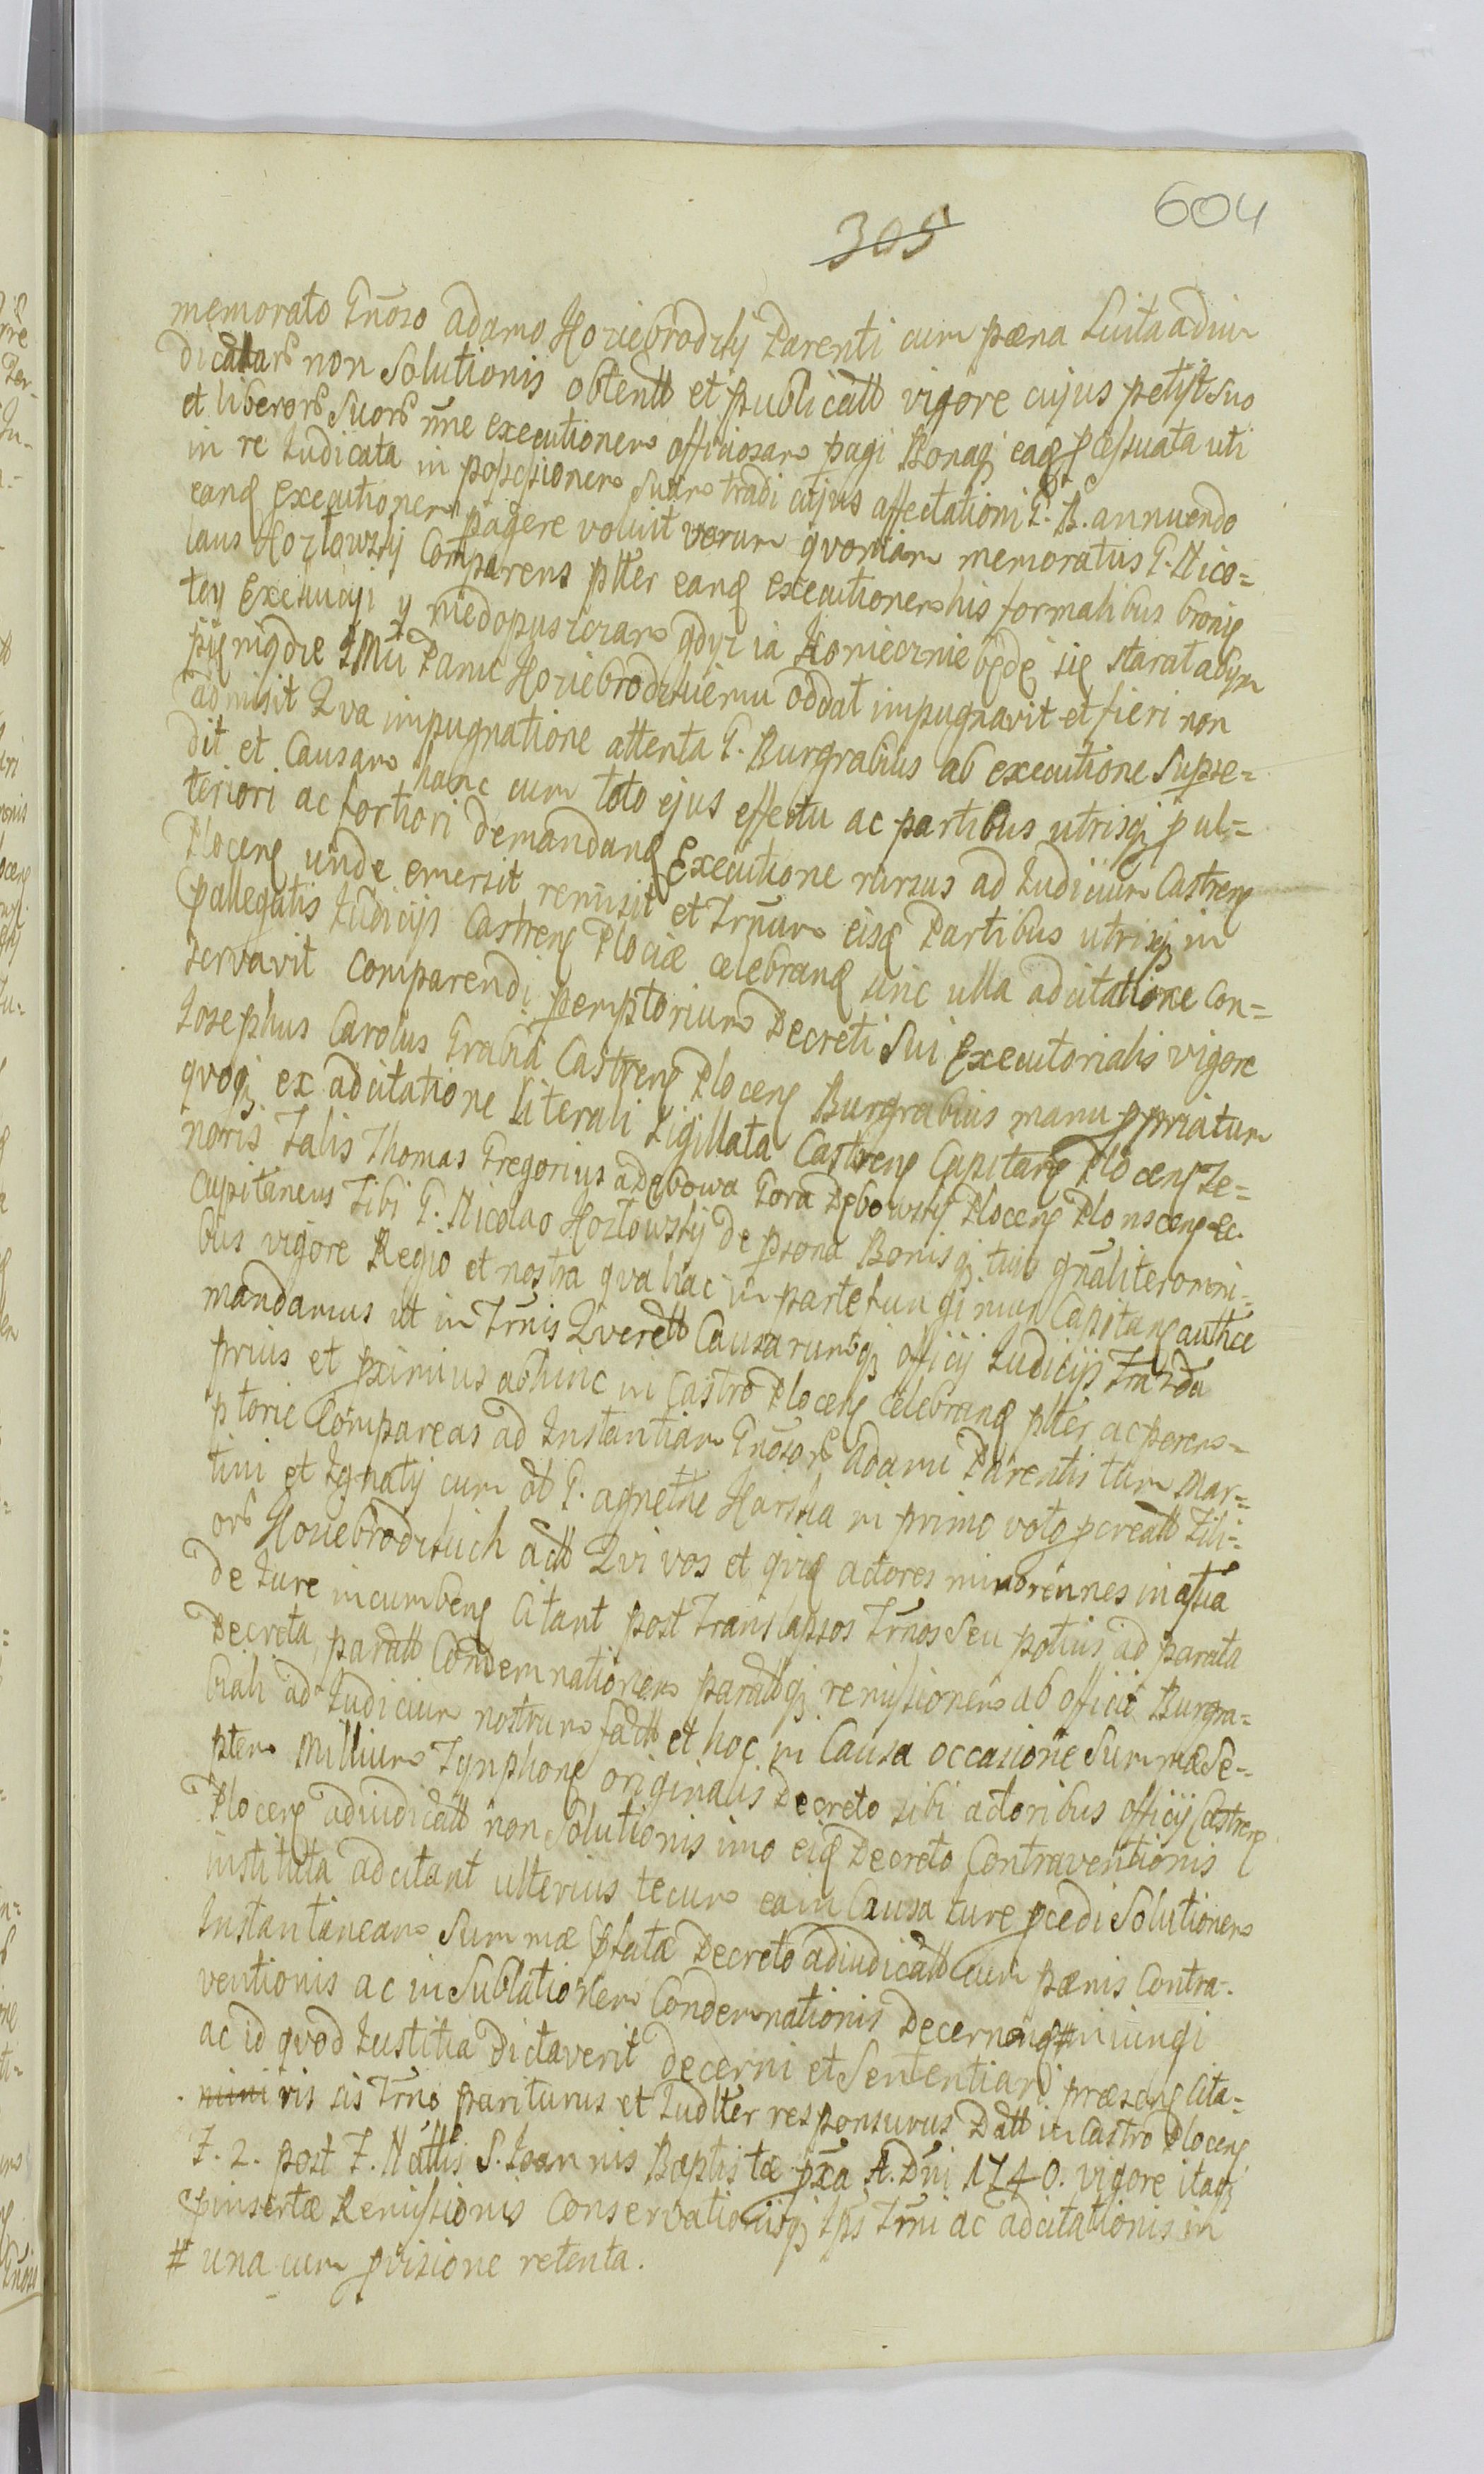 604
305
memorato Gnoso Adamo Koziebrodzky Parenti cum pæna Luita adiu
dicatars non Solutionis obtentt et publicatt vigore cujus petijt suo
et liberors suors nne executionem officiosam pagi Bonaq eaq pcessuata uti
in re Iudicata in possessionem suam tradi cujus affectationi G. B. annuendo
eanq executionem pagere voluit verum qvoniam memoratus G. Nico=
laus Kozłowsky Comparens ptter eanq executionem his formalibus bronię
tey Exekucyi y niedopuszczam gdyz ia Koniecznie będę się starał abym
pieniądze JMu Panu Koziebrodzkiemu oddał impugnavit et fieri non
admisit Qva impugnatione attenta G. Burgrabius ab executione Superse=
dit et Causam hanc cum toto ejus effectu ac partibus utrisq p ul=
teriori ac fortiori demandanq Executione rursus ad Iudicium Castrenq
Plocenq unde emersit remisit et Trnum eisq Partibus utrisq in
pallegatis Iudicijs Castrenq Plociæ celebranq sine ulla adcitatione con=
servavit comparendi pemptorium Decreti Sui Executorialis vigore
Iosephus Carolus Grabia Castrenq Plocenq Burgrabius manu ppria tum
qvoq ex adcitatione Literali Sigillata Castrenq Capitanq Plocenq Te=
noris Talis Thomas Gregorius a Dębowa Gora Dębowsky Plocenq Plonscenq &c.
Capitaneus Tibi G. Nicolao Kozłowsky de psona Bonisq tuis gnaliter omni=
bus vigore Regio et nostra qva hac in parte fungimur Capitanq authte
mandamus ut in Trnis Qverett Causarumq officij Iudicijs
prius et pximius abhinc in Castro Plocenq celebranq ptter ac perem=
ptorie Compareas ad Instantiam Gnosors Adami Parentis tum Mar=
tini et Ignatij cum ot G. Agnethe Karska in primo voto pcreatt Fili=
ors Koziebrodzkich Actt Qvi vos et qviq actores minorennes in
de Iure incumbenq Citant post Translapsos Trnos seu potius ad parata
Decreta, paratt Condemnationem parattq remissionem ab officio Burgra=
biali ad Iudicium nostrum factt et hoc in Causa occasione Summæ Se=
ptem Millium Tynphonq originalis Decreto sibi actoribus officij Castrenq
Plocenq adiudicatt non Solutionis imo eiq Decreto Contraventionis
instituta adcitant ulterius tecum ea in Causa Iure pcedi Solutionem
Instantaneam Summæ pfatæ Decreto adiudicatt cum pænis Contra=
ventionis ac in Sublationem Condemnationis Decernenq # iniungi
ac id qvod Iustitia Dictaverit decerni et Sententiari præsenq Cita=
ris sis Trno pariturus et Iudlter responsurus Datt in Castro Plocenq
F. 2. post F. Nattis S. Ioannis Baptistæ pxa A. Dni 1740. vigore itaq
pinsertæ Remissionis Conservationisq Ips Trni ac adcitationis in
# una cum pvisione retenta.